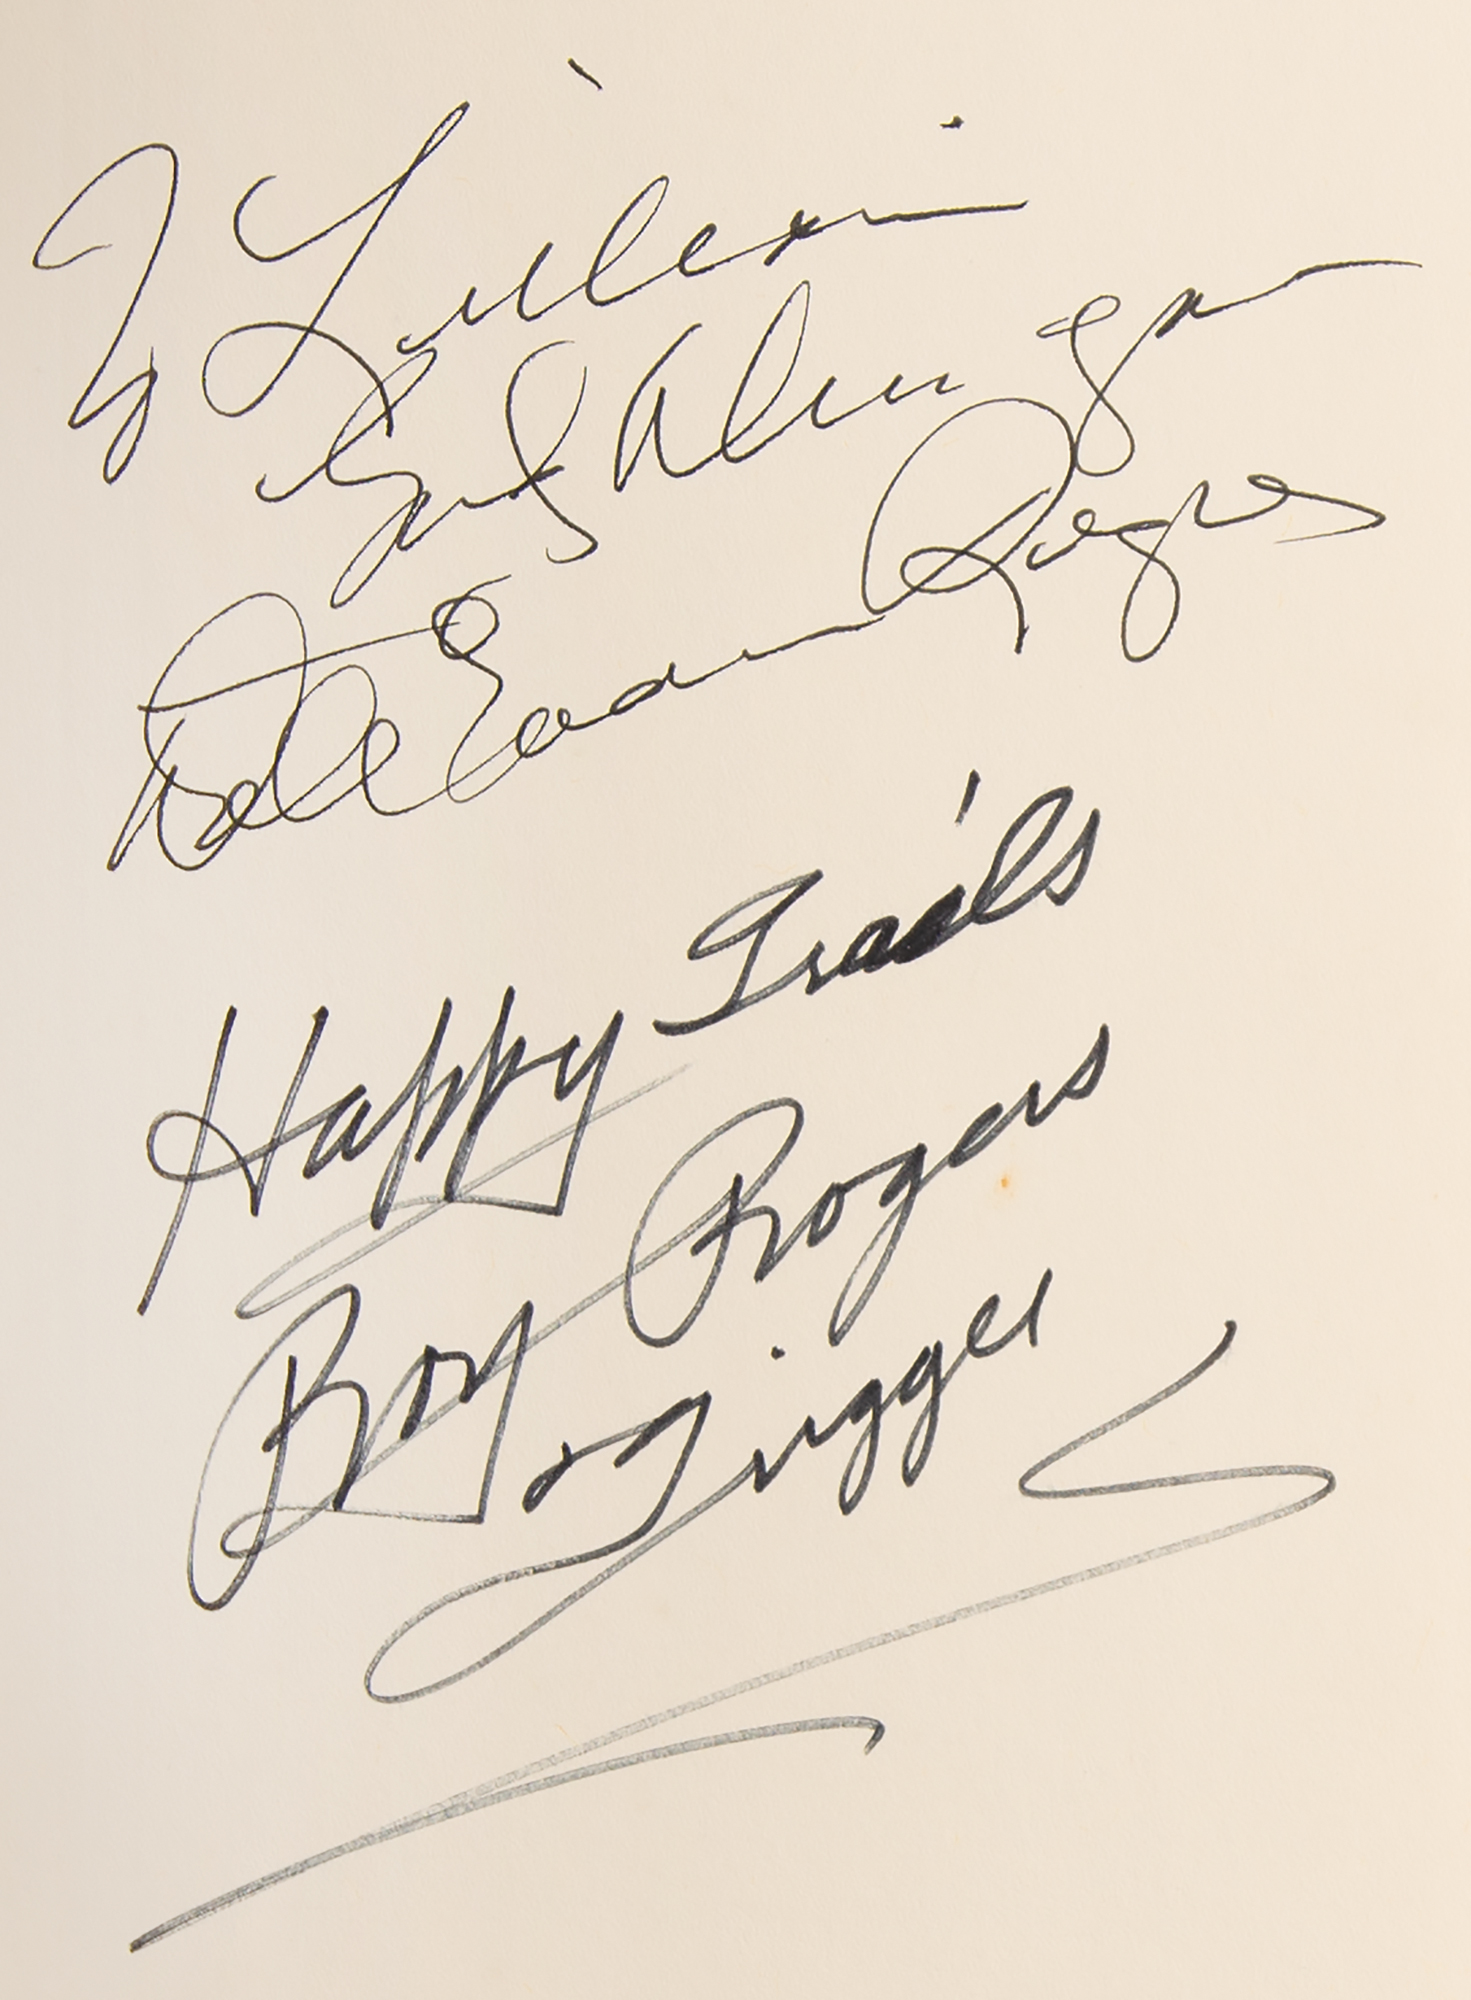 To Lillian
God Always
Dale Evans Rogers
Happy Trails
Roy Rogers
& Trigger